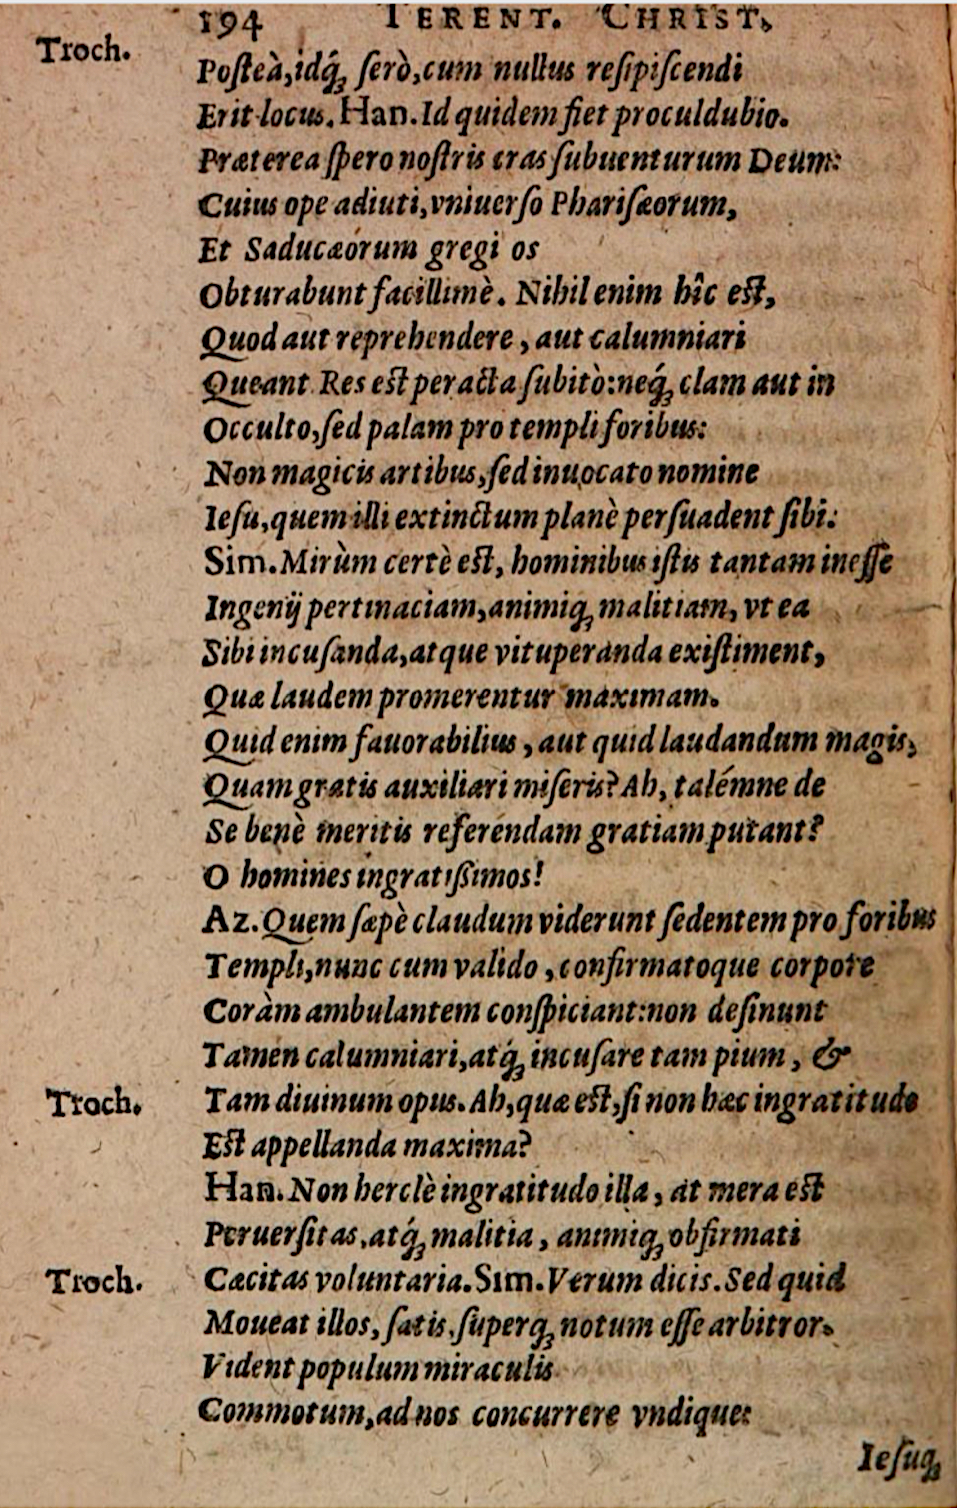 194 TERENT. CHRIST.
Troch.
Poſteà,idq́ꝫ ſerò,cum nullus reſipiſcendi
Erit locus. Han. Id quidem fiet proculdubio.
Præterea ſpero noſtris cras ſubuenturum Deum:
Cuius ope adiuti,vniuerſo Phariſæorum,
Et Saducæórum gregi os
Obturabunt facillimè. Nihil enim hîc eſt,
Quod aut reprehendere, aut calumniari
Queant Res eſt peracta ſubitò:neq́ꝫ clam aut in
Occulto,ſed palam pro templi foribus:
Non magicis artibus,ſed inuocato nomine
Ieſu,quem illi extinctum planè perſuadent ſibi:
Sim. Mirùm certè eſt, hominibus iſtis tantam ineſſe
Ingenij pertinaciam,animiqꝫ malitiam, vt ea
Sibi incuſanda,atque vituperanda exiſtiment,
Quæ laudem promerentur maximam.
Quid enim fauorabilius, aut quid laudandum magis,
Quam gratis auxiliari miſeris? Ah, talémne de
Se benè meritis referendam gratiam putant?
O homines ingratiſsimos!
Az. Quem ſæpè claudum viderunt ſedentem pro foribus
Templi,nunc cum valido, confirmatoque corpore
Coràm ambulantem conſpiciant:non deſinunt
Tamen calumniari,atq́ꝫ incuſare tam pium, &
Troch. Tam diuinum opus. Ah,quæ eſt,ſi non hæc ingratitudo
Eſt appellanda maxima?
Han. Non herclè ingratitudo illa, at mera eſt
Peruerſitas,atq́ꝫ malitia, animiqꝫ obfirmati
Troch. Cæcitas voluntaria. Sim. Verum dicis. Sed quid
Moueat illos, ſatis,ſuperqꝫ notum eſſe arbitror.
Vident populum miraculis
Commotum,ad nos concurrere vndique:
Ieſuqꝫ